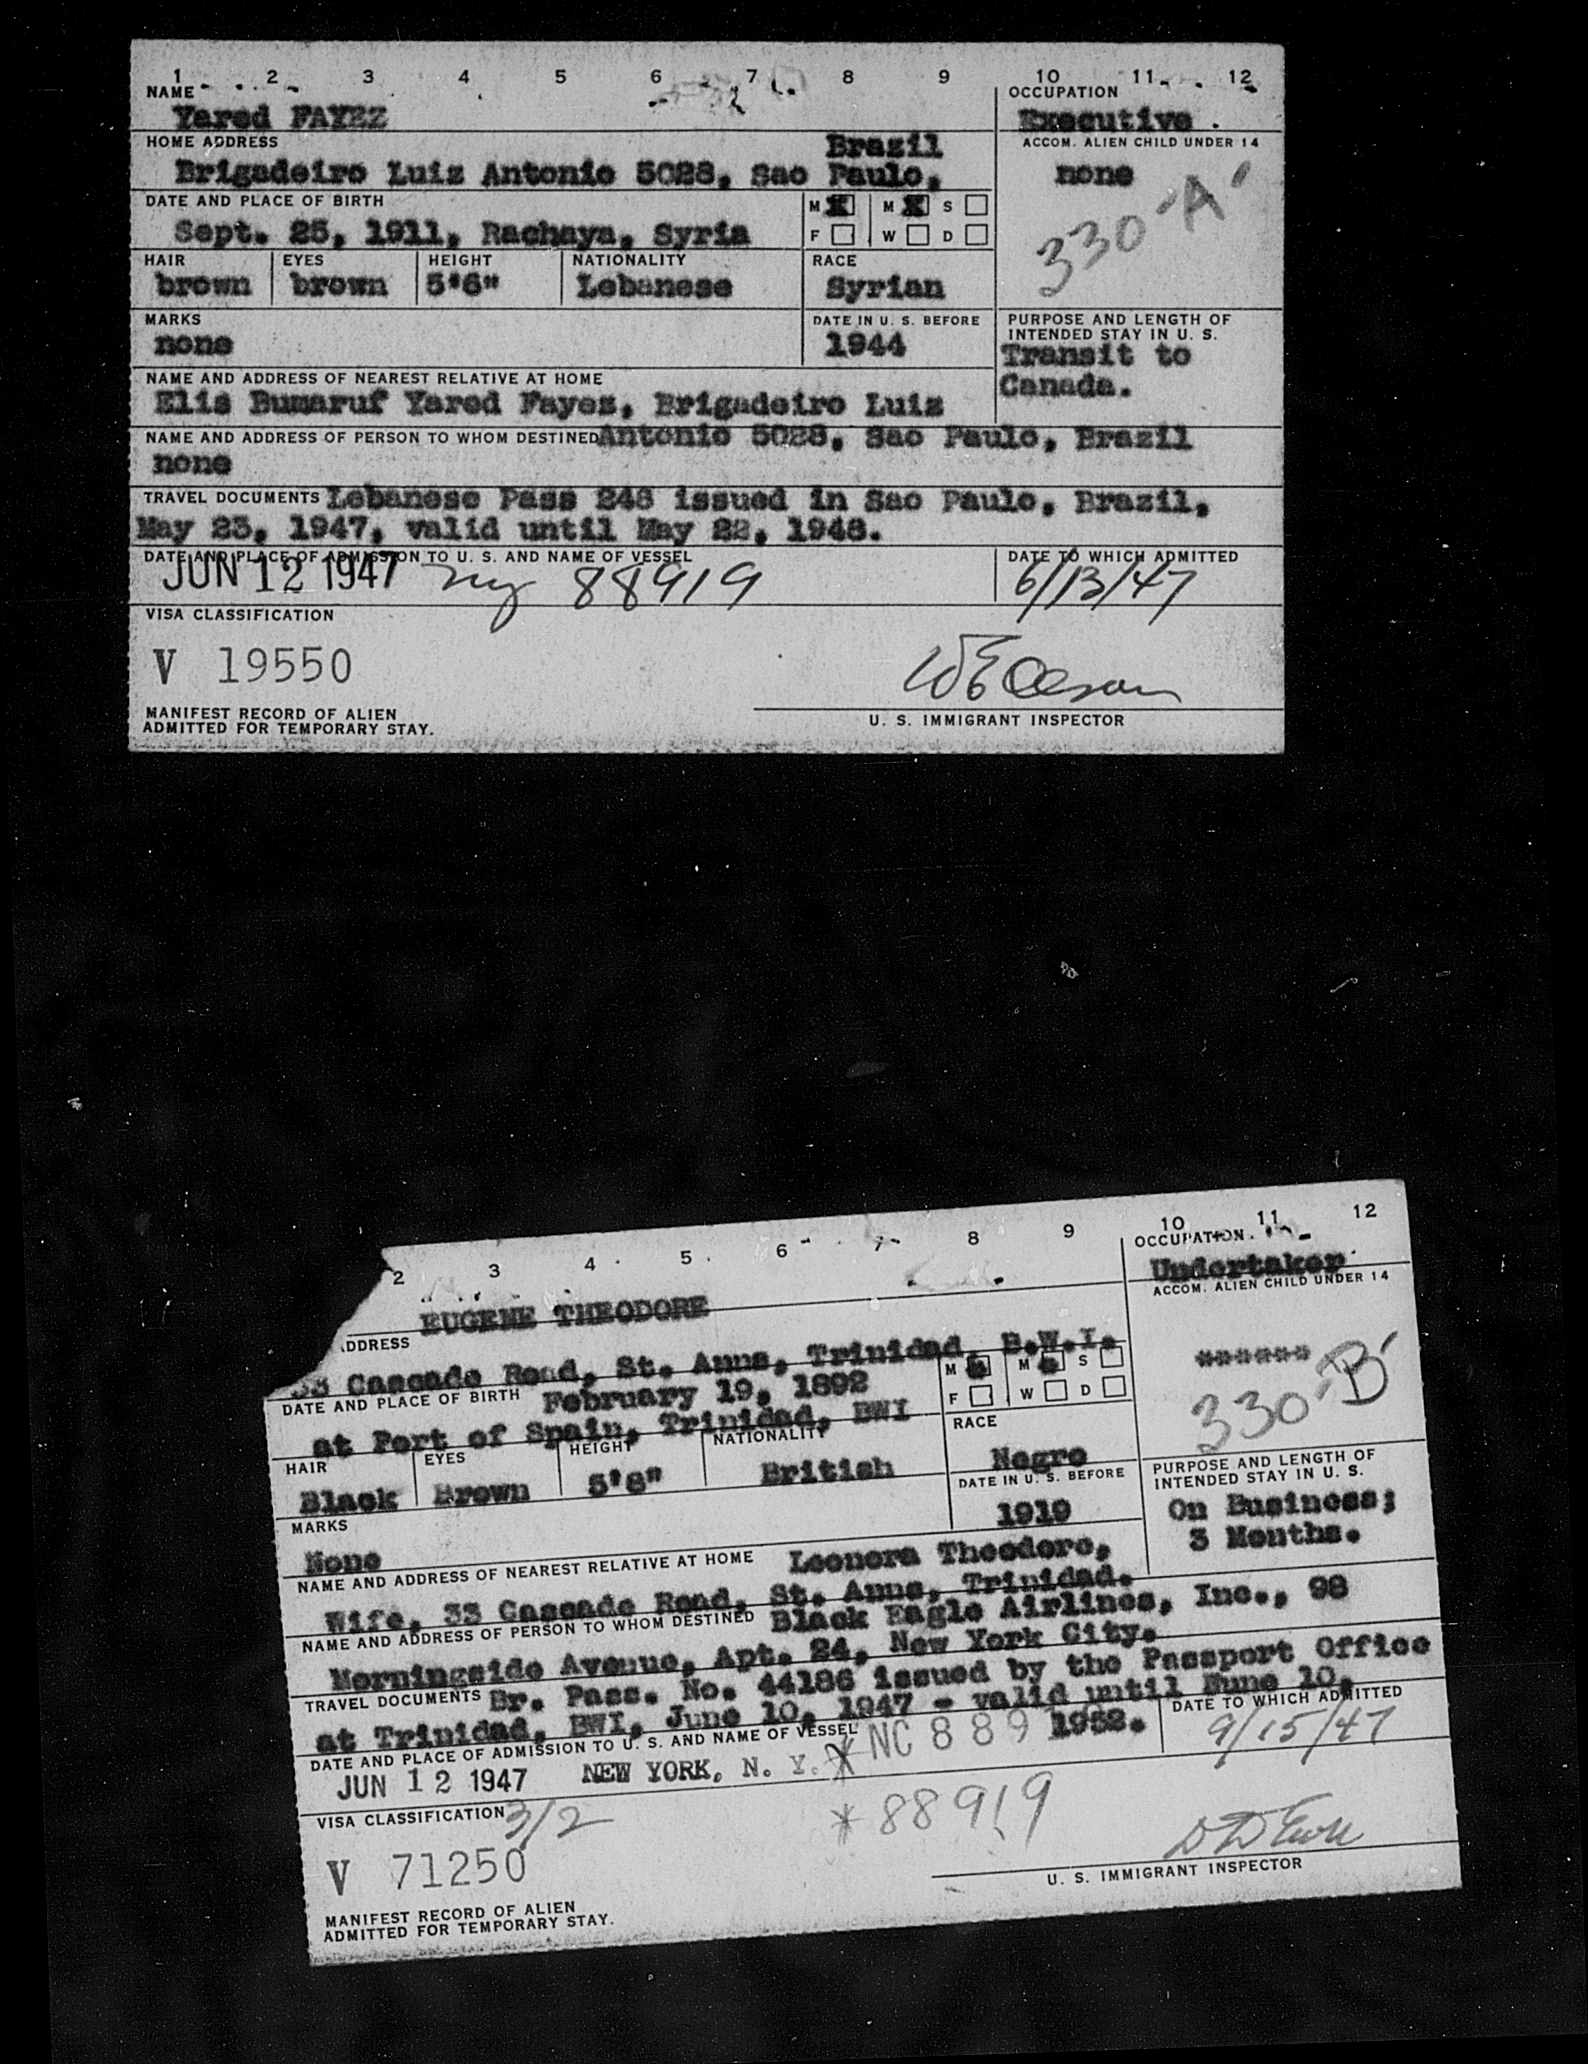 1 2 3 4 5 6 7 8 9 10 11 12
NAME OCCUPATION
Yared FAYEZ Executive
HOME ADDRESS Brazil ACCOM. ALIEN CHILD UNDER 14
Brigadeiro Luiz Antonio 5028, Sao Paulo, none
330-'A'
DATE AND PLACE OF BIRTH M X M X S
Sept. 25, 1911, Rachaya, Syria F W D
HAIR EYES HEIGHT NATIONALITY RACE
brown brown 5'6" Lebanese Syrian
MARKS DATE IN U. S. BEFORE PURPOSE AND LENGTH OF
INTENDED STAY IN U. S.
none 1944 Transit to
Canada.
NAME AND ADDRESS OF NEAREST RELATIVE AT HOME
Elis Bumaruf Yared Fayez, Brigadeiro Luiz
NAME AND ADDRESS OF PERSON TO WHOM DESTINED Antonio 5028, Sao Paulo, Brazil
none
TRAVEL DOCUMENTS Lebanese Pass 248 issued in Sao Paulo, Brazil,
May 23, 1947, valid until May 22, 1948.
DATE AND PLACE OF ADMISSION TO U. S. AND NAME OF VESSEL DATE TO WHICH ADMITTED
JUN 12 1947 ny 88919 6/13/47
VISA CLASSIFICATION
V 19550
MANIFEST RECORD OF ALIEN
ADMITTED FOR TEMPORARY STAY.
U. S. IMMIGRANT INSPECTOR
2 3 4 5 6 7 8 9 10 11 12
OCCUPATION
EUGENE THEODORE Undertaker
ADDRESS ACCOM. ALIEN CHILD UNDER 14
33 Cascade Road, St. Anns, Trinidad, B.W.I.
330-'B'
DATE AND PLACE OF BIRTH February 19, 1892 M M S
at Port of Spain, Trinidad, BWI F W D
HAIR EYES HEIGHT NATIONALITY RACE
Black Brown 5'8" British Negro
MARKS DATE IN U. S. BEFORE PURPOSE AND LENGTH OF
INTENDED STAY IN U. S.
None 1919 On Business;
3 Months.
NAME AND ADDRESS OF NEAREST RELATIVE AT HOME Leonora Theodore,
Wife, 33 Cascade Road, St. Anns, Trinidad.
NAME AND ADDRESS OF PERSON TO WHOM DESTINED Black Eagle Airlines, Inc., 98
Morningside Avenue, Apt. 24, New York City.
TRAVEL DOCUMENTS Br. Pass. No. 44186 issued by the Passport Office
at Trinidad, BWI, June 10, 1947 - valid until June 10,
1952.
DATE AND PLACE OF ADMISSION TO U. S. AND NAME OF VESSEL DATE TO WHICH ADMITTED
JUN 12 1947 NEW YORK, N. Y. NC 889 9/15/47
VISA CLASSIFICATION 3/2
*88919
V 71250
U. S. IMMIGRANT INSPECTOR
MANIFEST RECORD OF ALIEN
ADMITTED FOR TEMPORARY STAY.